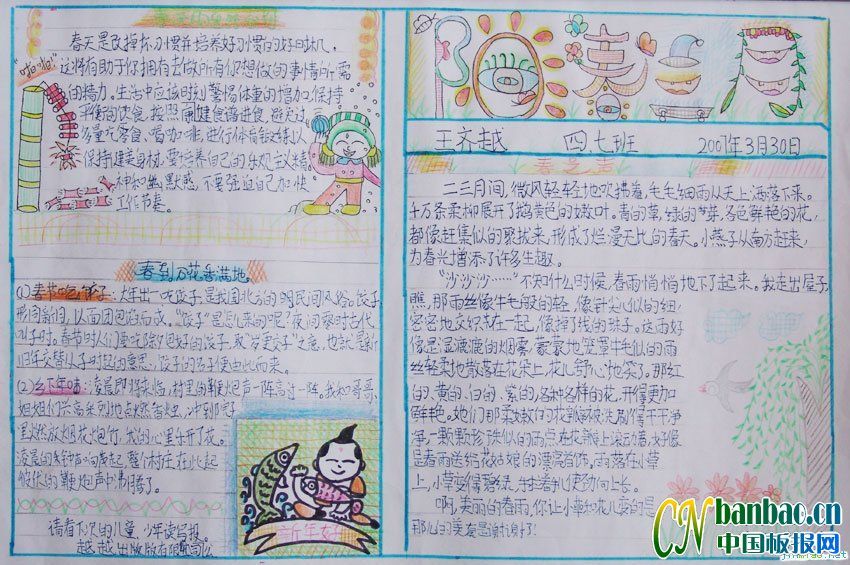 春天是改掉坏习惯并培养好习惯的好时机,
这将有助于你拥有去做所有你想做的事情所需
的精力。生活中应该时刻警惕体重的增加,保持
平衡的饮食。按照
保持健美身材。要培养自己的乐观
神和幽默感,不要强迫自己加快
工作节奏。
"啪啪"
春到万花香满地
(1)春节吃饺子:大年初一吃饺子,是我国北方的 民间风俗。饺子
形同新月,以面团包馅而成。"饺子"是怎样来的呢?夜间零时古代
叫子时。春节时人们要吃除夕包好的饺子,取"岁更交子"之意,也就是新
旧年交替从子时起的意思,饺子的名子便由此而来。
(2)乡下年味:凌晨即将来临,村里的鞭炮声一阵高过一阵。我和哥哥、
姐姐们兴高采烈地点燃香烛,冲到院子
里燃放烟花炮竹,我的心里乐开了花。
凌晨的 钟声 响起,整个村庄在此起
彼伏的鞭炮声中沸腾了。
新年好
请看下次的儿童,少年读写报。
越越出版版有限公司
阳 美
王齐越 四、七班 2007年3月30日
春之声
二三月间,微风轻轻地吹拂着,毛毛细雨从天上洒落下来。
千万条柔柳展开了鹅黄色的嫩叶。青的草,绿的芽,各色鲜艳的花,
都像赶集似的聚拢来,形成了烂漫无比的春天。小燕子从南方赶来,
为春光增添了许多生趣。
"沙沙沙……"不知什么时候,春雨悄悄地下了起来。我走出屋子,
瞧,那雨丝像牛毛般的轻,像针尖似的细,
密密地交织在一起,像掉了线的珠子。这雨好
像是湿漉漉的烟雾,蒙蒙地笼罩牛毛似的雨
丝轻柔地散落在花朵上,花儿舒心地笑了。那红
的、黄的、白的、紫的,各种各样的花,开得更加
鲜艳。她们那柔嫩的花瓣被洗刷得干干净
净,一颗颗珍珠似的雨点在花瓣上滚动着,好像
是春雨送给花姑娘的漂亮首饰。雨落在小草
上,小草变得碧绿,
啊,美丽的春雨,你让小草和花儿变的是
那么的美
CN banbao.cn
中国板报网